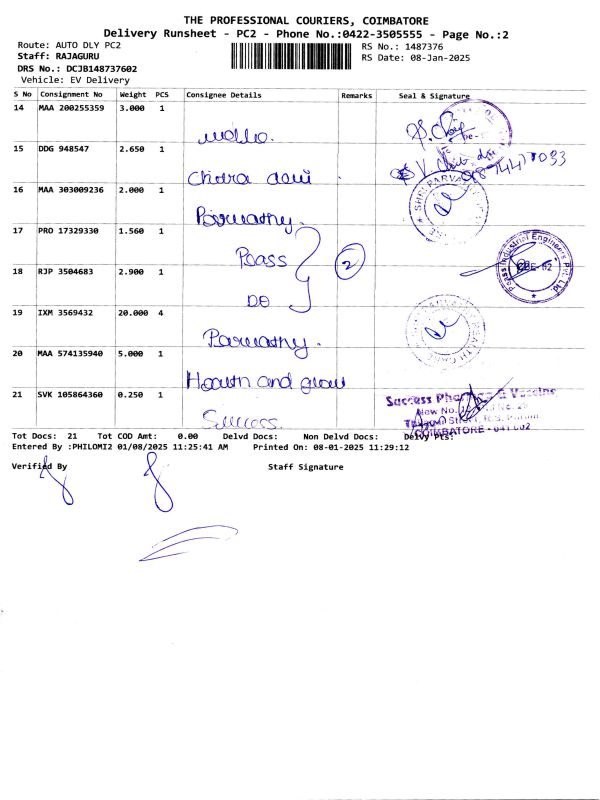 THE PROFESSIONAL COURIERS, COIMBATORE
Delivery Runsheet - PC2 - Phone No.:0422-3505555 - Page No.:2
Route: AUTO DLY PC2
Staff: RAJAGURU
DRS No.: DCJB148737602
Vehicle: EV Delivery
RS No.: 1487376
RS Date: 08-Jan-2025
S No Consignment No Weight PCS Consignee Details Remarks Seal & Signature
14 MAA 200255359 3.000 1
15 DDG 948547 2.650 1
Chitra devi
16 MAA 303009236 2.000 1
Parvathy.
17 PRO 17329330 1.560 1
Paass
2
18 RJP 3504683 2.900 1
DO
Paass Industrial Engineers Pvt. Ltd.
19 IXM 3569432 20.000 4
Parvathy.
20 MAA 574135940 5.000 1
Health and glow
21 SVK 105864360 0.250 1
Success
Success Pharma & Vaccins
COIMBATORE - 641 002
Tot Docs: 21 Tot COD Amt: 0.00 Delvd Docs: Non Delvd Docs: Delvy Pts:
Entered By :PHILOMI2 01/08/2025 11:25:41 AM Printed On: 08-01-2025 11:29:12
Verified By Staff Signature